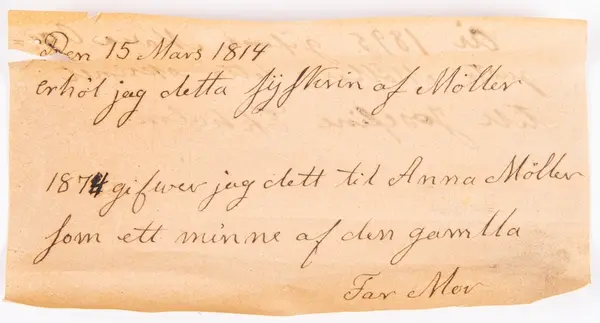 Den 15 Mars 1814
erhöl jag detta syskrin af Möller
1874 gifwer jag dett til Anna Möller
som ett minne af den gamlla
Far Mor